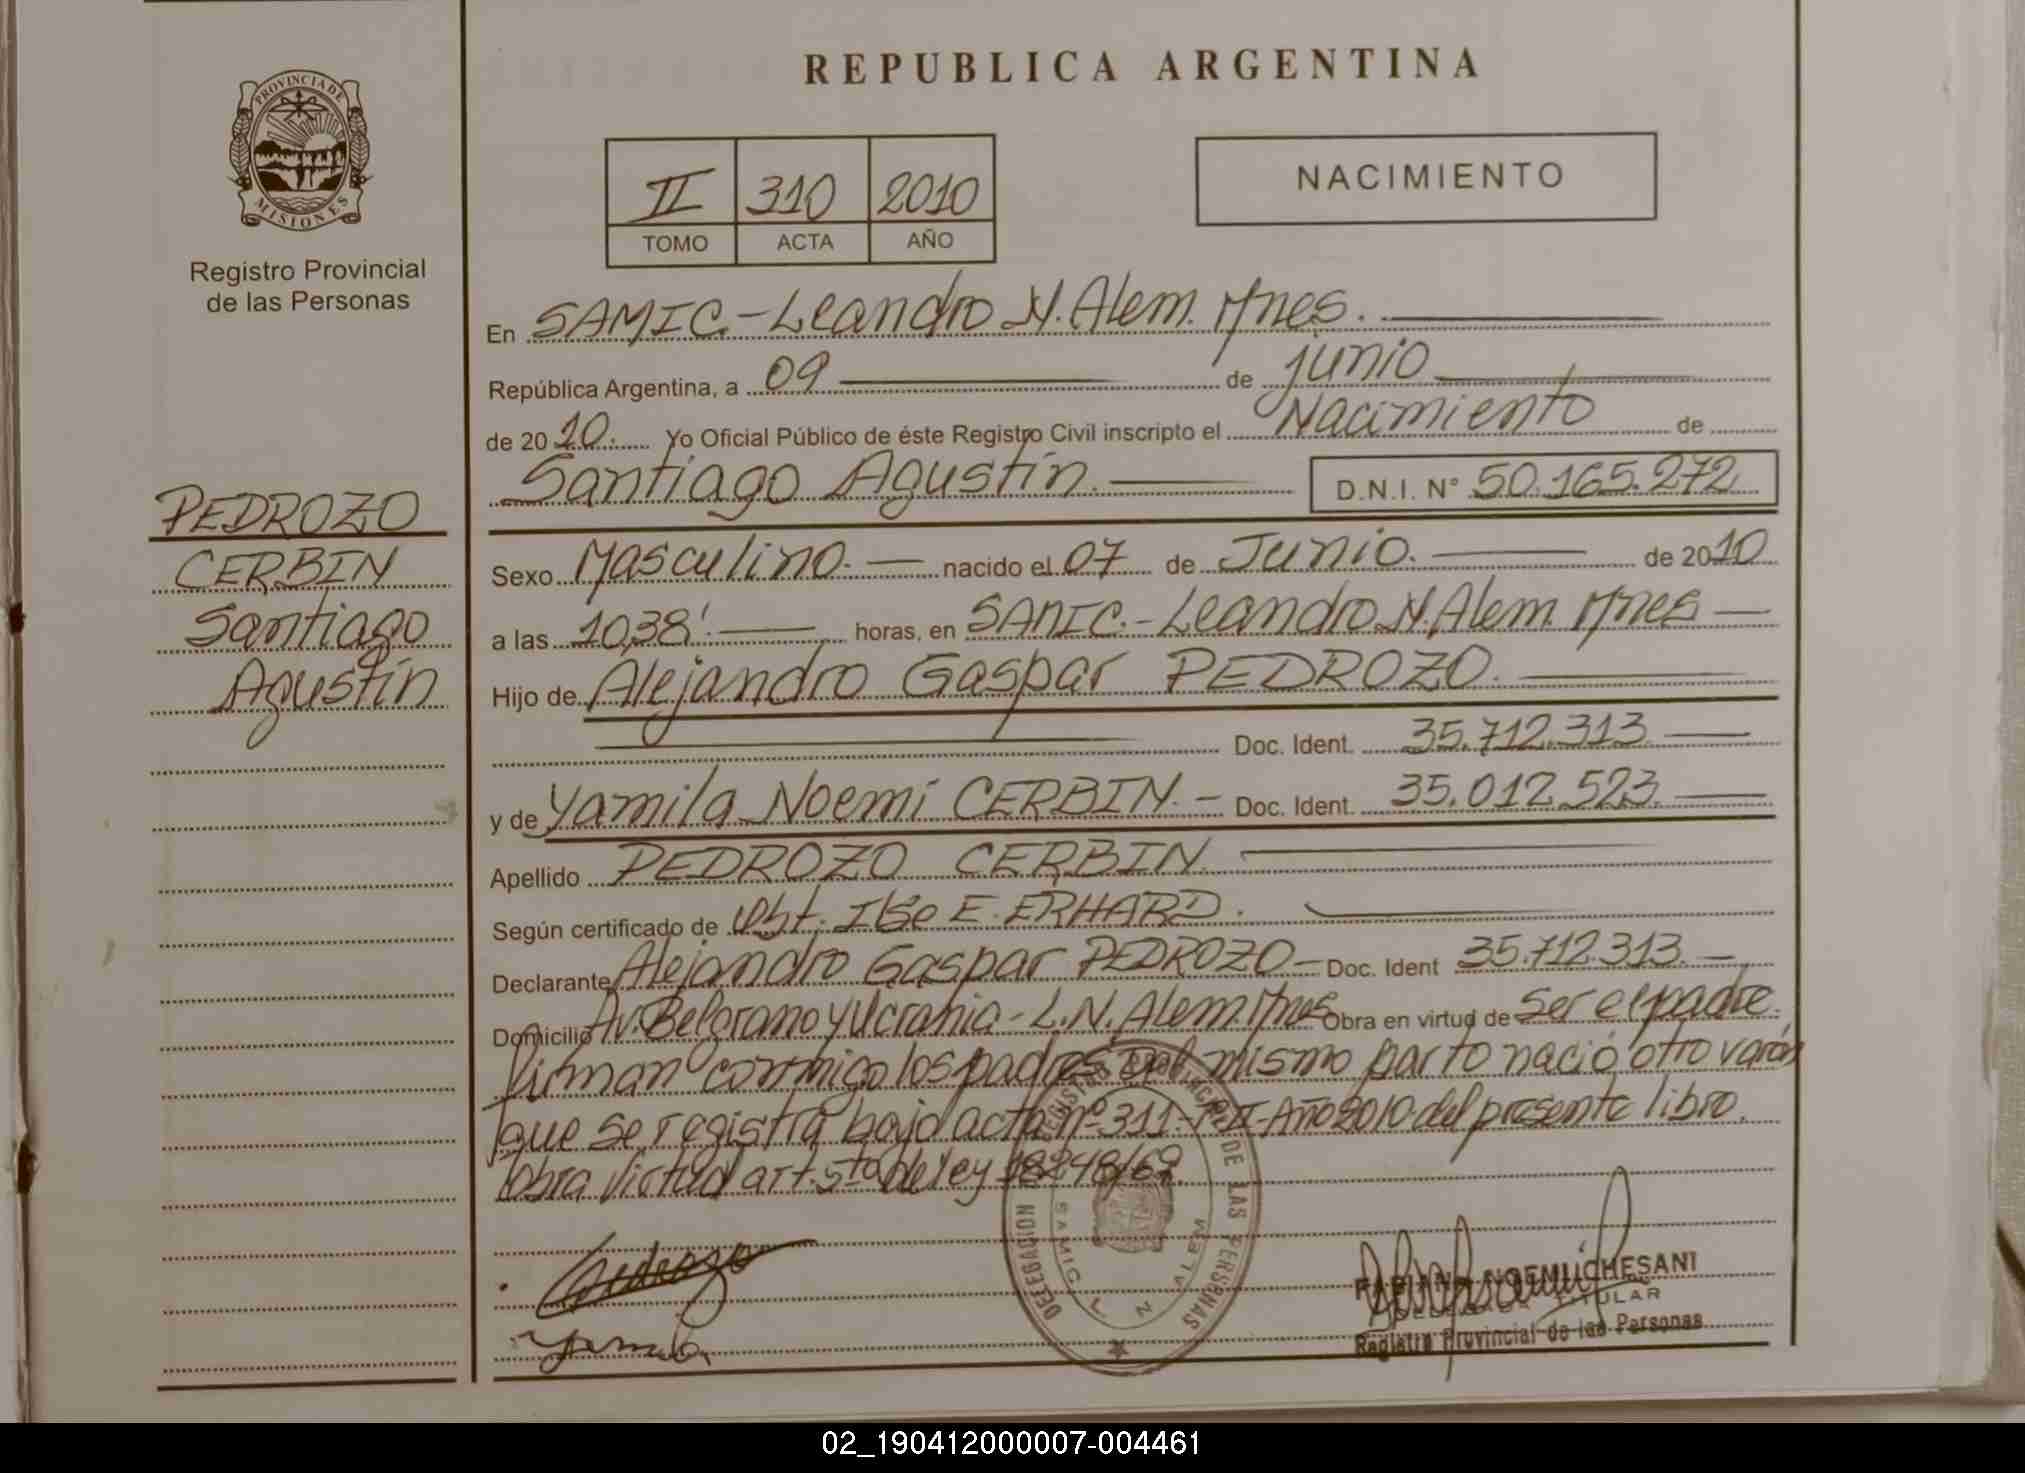 PROVINCIA DE
MISIONES
Registro Provincial
de las Personas
PEDROZO
CERBIN
Santiago
Agustín
REPUBLICA ARGENTINA
II 310 2010
TOMO ACTA AÑO
NACIMIENTO
En SAMIC.-Leandro N. Alem. Mnes.
República Argentina, a 09 de junio
de 2010. Yo Oficial Público de éste Registro Civil inscripto el Nacimiento de
Santiago Agustín. D.N.I. N° 50.165.272
Sexo Masculino. nacido el 07 de Junio. de 2010
a las 10,38'. horas, en SAMIC.-Leandro N. Alem. Mnes
Hijo de Alejandro Gaspar PEDROZO.
Doc. Ident. 35.712.313
y de Yamila Noemí CERBIN.- Doc. Ident. 35.012.523.
Apellido PEDROZO CERBIN.
Según certificado de Obst. Ilse E. ERHARD.
Declarante Alejandro Gaspar PEDROZO- Doc. Ident 35.712.313.
Domicilio Av. Belgrano y Ucrania-L.N. Alem Mnes Obra en virtud de ser el padre.
firman conmigo los padres. Del mismo parto nació otro varón
que se registra bajo acta nº 311-T-II-Año 2010 del presente libro.
obra virtud art. 5to de ley 18248/69.
DELEGACION REGISTRO PROVINCIAL DE LAS PERSONAS
SAMIC L N ALEM
Pedrozo
Yamila
NOEMI CHESANI
TITULAR
Registro Provincial de las Personas
02_190412000007-004461